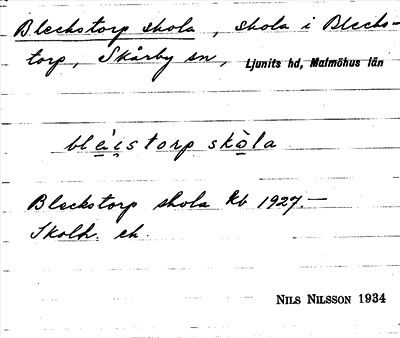 Bleckstorp skola, skola i Blecks-
torp, Skårby sn, Ljunits hd, Malmöhus län
blèi̯storp skò̱la
Bleckstorp skola Kb 1927.—
Skolh. ek.
NILS NILSSON 1934